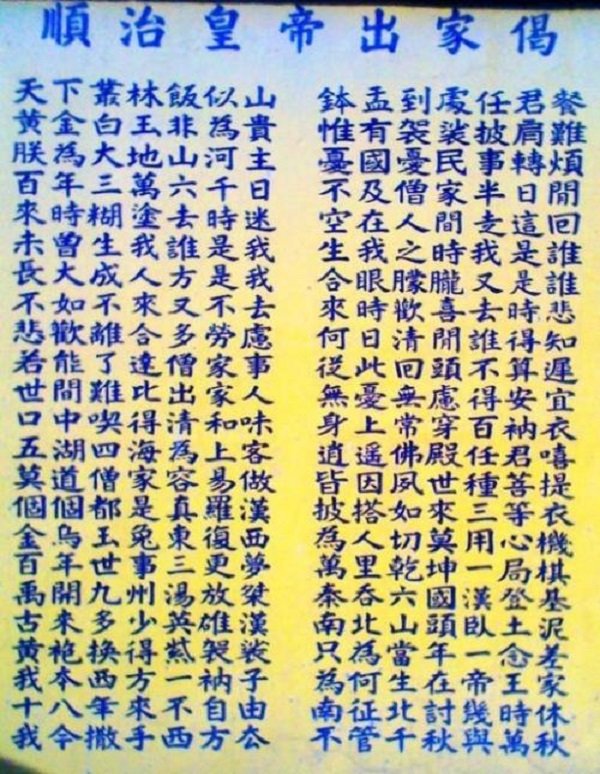 順治皇帝出家偈
天下叢林飯似山 鉢盂到處任君餐
黃金白玉非為貴 惟有袈裟披肩難
朕為大地山河主 憂國憂民事轉煩
百年三萬六千日 不及僧家半日閒
來時糊塗去時迷 空在人間走這回
未曾生我誰是我 生我之時我是誰
長大成人方是我 合眼朦朧又是誰
不如不來又不去 來時歡喜去時悲
悲歡離合多勞慮 何日清閒誰得知
若能了達僧家事 從此回頭不算遲
世間難比出家人 無憂無慮得安宜
口中喫得清和味 身上常穿百衲衣
五湖四海為上客 逍遙佛殿任君嘻
莫道僧家容易做 皆因夙世種菩提
個個都是真羅漢 披搭如來三等衣
金烏玉兔東復西 為人切莫用心機
百年世事三更夢 萬里乾坤一局棋
禹開九州湯放桀 秦吞六國漢登基
古來多少英雄漢 南北山頭臥土泥
黃袍換得紫袈裟 只為當年一念差
我本西方一衲子 為何生在帝王家
十八年來不自由 南征北討幾時休
我今撒手西方厺 不管千秋與萬秋